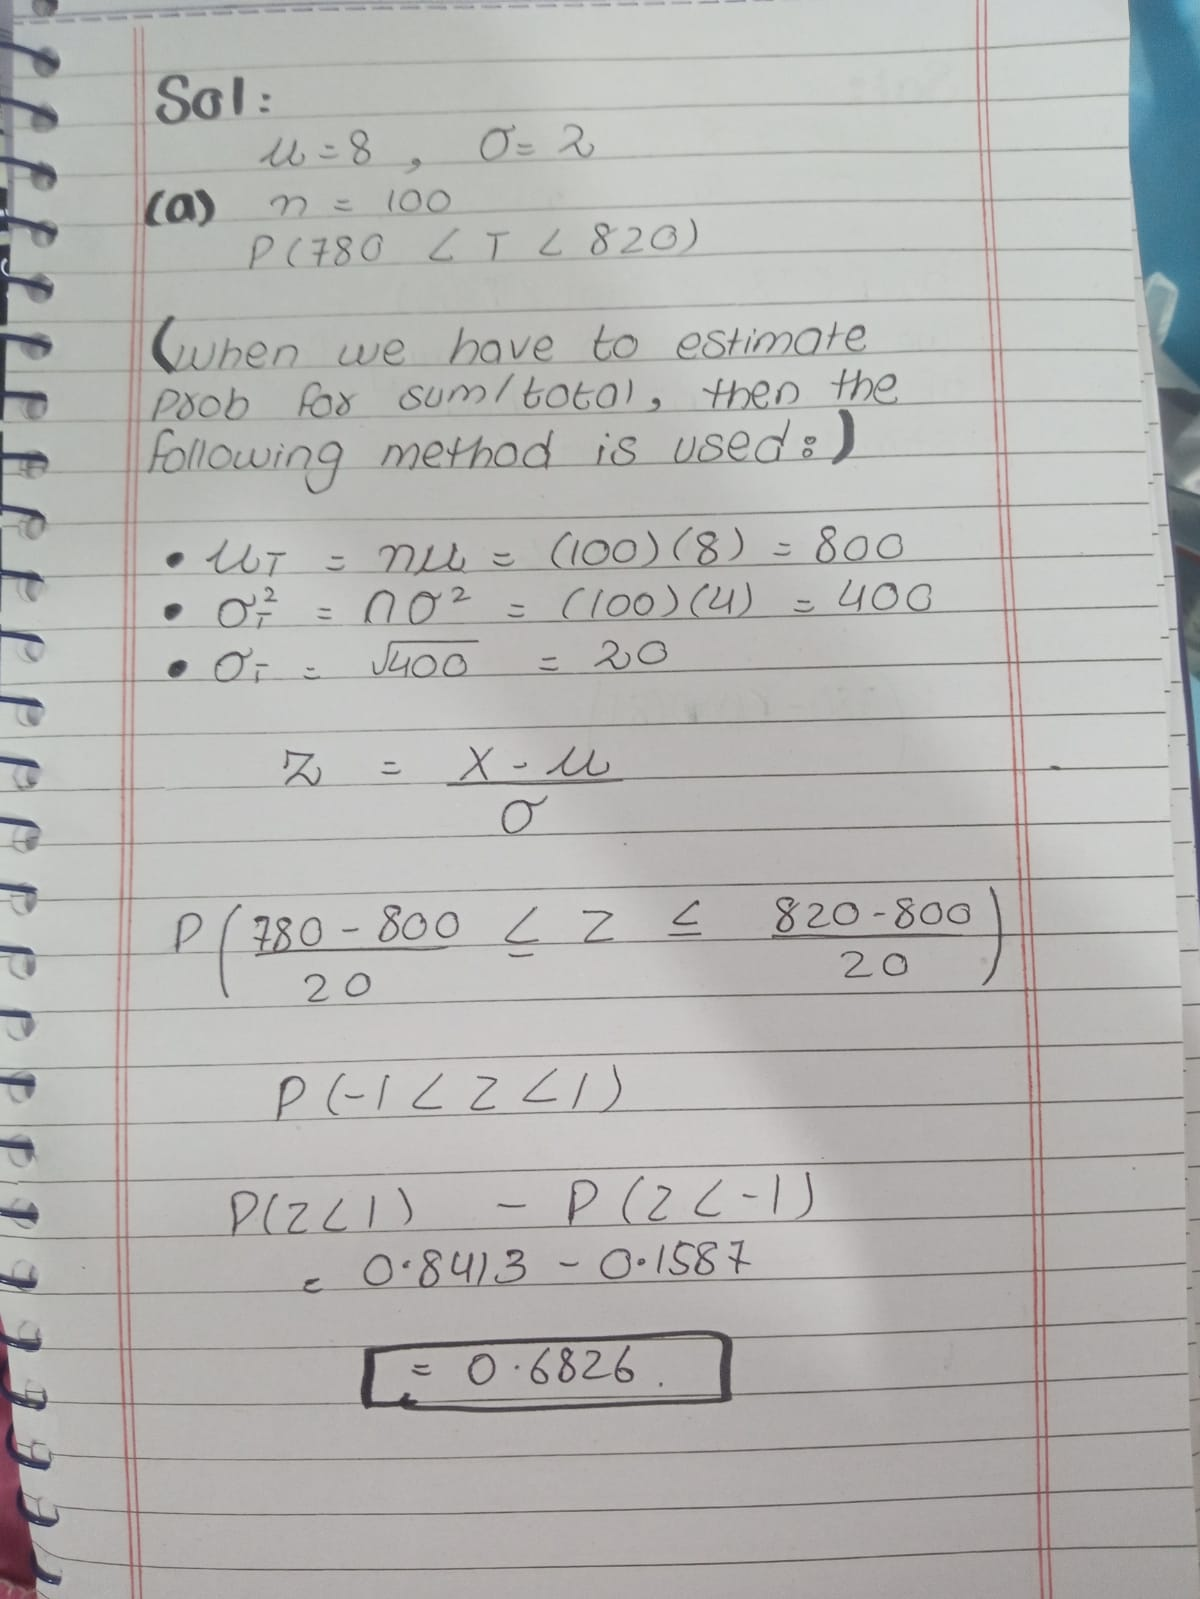 Sol:
μ = 8 , σ = 2
(a) n = 100
P(780 < T < 820)
(when we have to estimate
prob for sum/total, then the
following method is used:)
• μT = nμ = (100)(8) = 800
• σT² = nσ² = (100)(4) = 400
• σT = √400 = 20
Z = X - μ
σ
P(780 - 800 ≤ Z ≤ 820 - 800)
20 20
P(-1 < Z < 1)
P(Z < 1) - P(Z < -1)
= 0.8413 - 0.1587
= 0.6826.